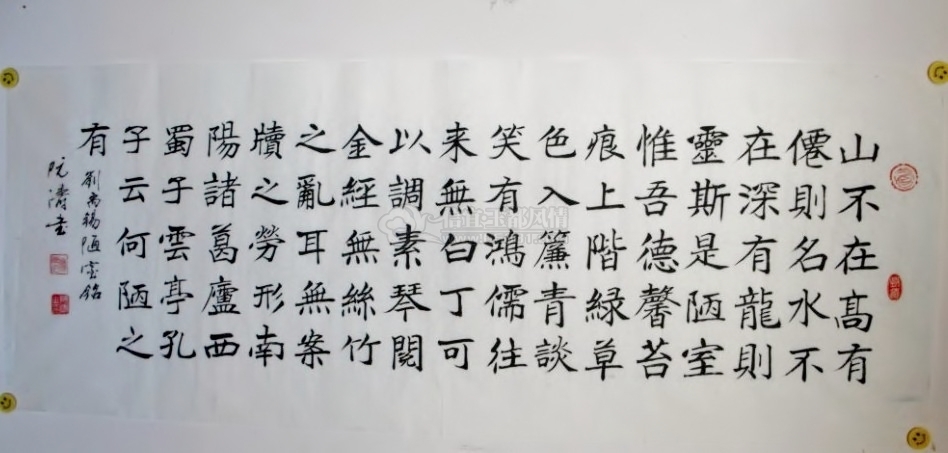 山不在髙有
僊則名水不
在深有龍則
靈斯是陋室
惟吾德馨苔
痕上階緑草
色入簾青談
笑有鴻儒往
来無白丁可
以調素琴閱
金經無絲竹
之亂耳無案
牘之勞形南
陽諸葛廬西
蜀子雲亭孔
子云何陋之
有
劉禹錫陋室銘
阮濤书
信宜玉都风情